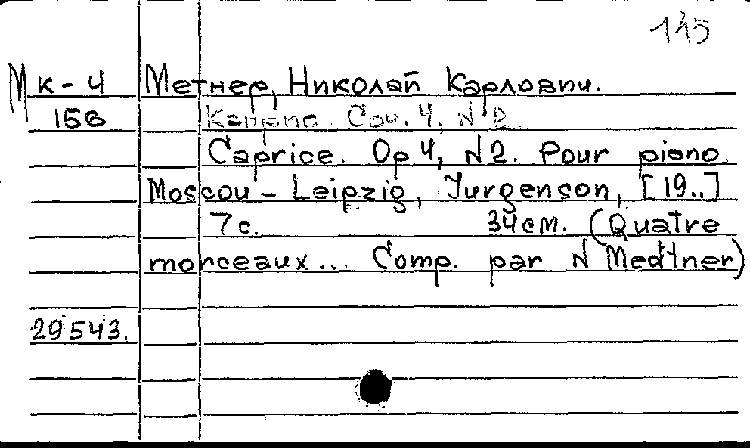 145
Мк-4 Метнер, Николай Карлович.
158 Соч. 4, №2
Caprice. Op 4, N2. Pour piano.
Moscou - Leipzig, Jurgenson, [19..]
7с. 34см. (Quatre
morceaux... Comp. par N Medtner)
29543.